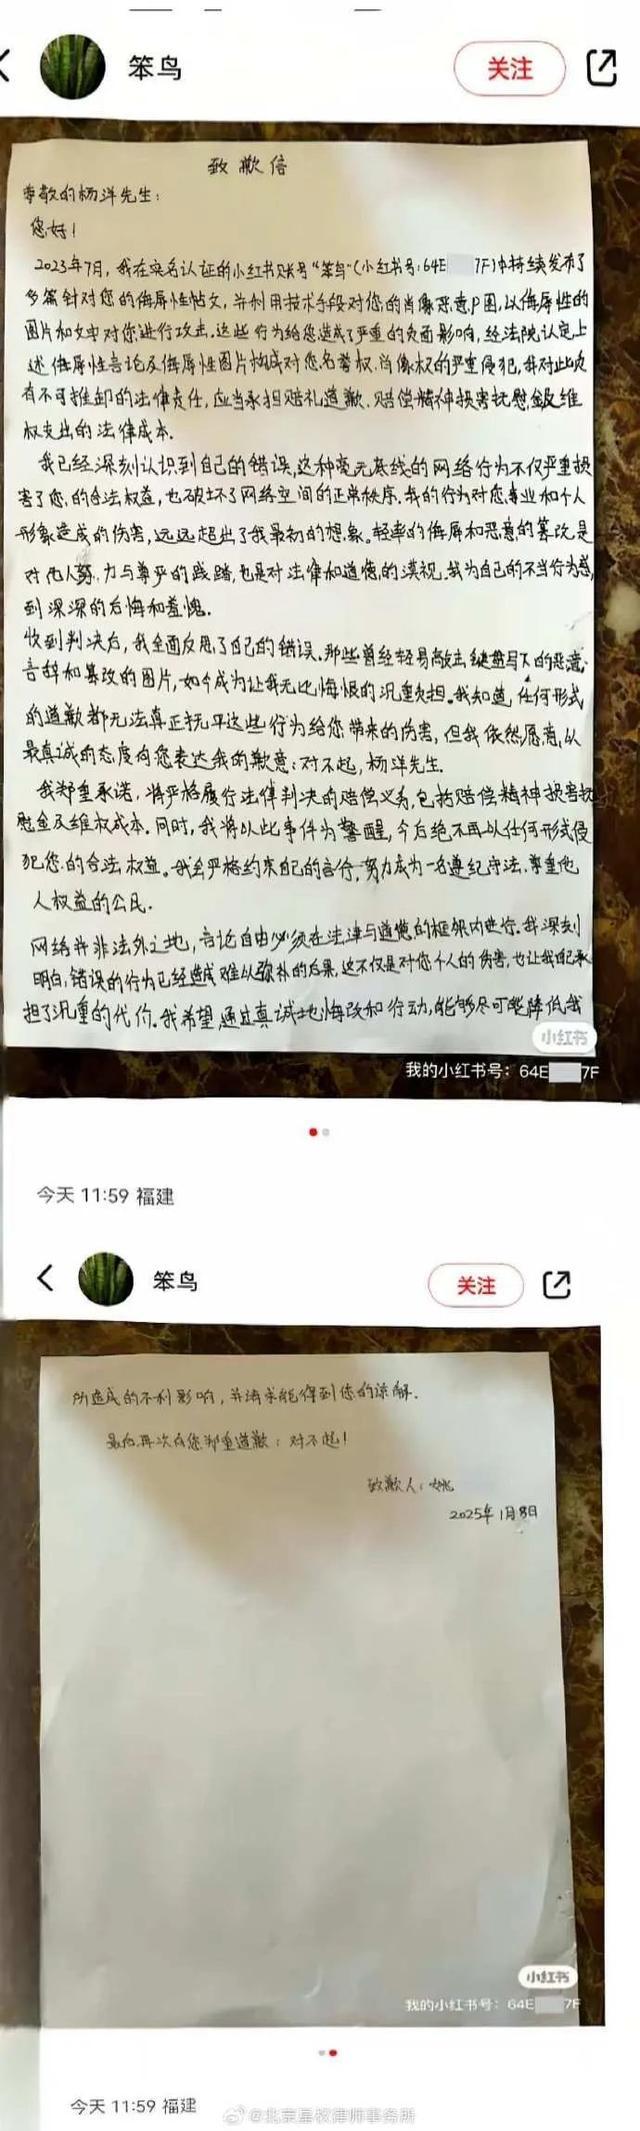 笨鸟
关注
致歉信
尊敬的杨洋先生：
您好！
2023年7月，我在实名认证的小红书账号“笨鸟”(小红书号:64E 7F)中持续发布了
多篇针对您的侮辱性帖文，并利用技术手段对您的肖像恶意P图，以侮辱性的
图片和文字对您进行攻击。这些行为给您造成了严重的负面影响，经法院认定上
述侮辱性言论及侮辱性图片构成对您名誉权、肖像权的严重侵犯，我对此负
有不可推卸的法律责任，应当承担赔礼道歉、赔偿精神损害抚慰金及维
权支出的法律成本.
我已经深刻认识到自己的错误,这种毫无底线的网络行为不仅严重损
害了您的合法权益，也破坏了网络空间的正常秩序.我的行为对您事业和个人
形象造成的伤害，远远超出了我最初的想象。轻率的侮辱和恶意的篡改是
对他人努力与尊严的践踏,也是对法律和道德的漠视.我为自己的不当行为感
到深深的后悔和羞愧.
收到判决后，我全面反思了自己的错误.那些曾经轻易敲击键盘写下的恶意
言辞和篡改的图片，如今成为让我无比悔恨的沉重负担。我知道,任何形式
的道歉都无法真正抚平这些行为给您带来的伤害，但我依然愿意从
最真诚的态度向您表达我的歉意：对不起，杨洋先生.
我郑重承诺，将严格履行法律判决的赔偿义务,包括赔偿精神损害抚
慰金及维权成本.同时，我将以此事件为警醒，今后绝不再以任何形式侵
犯您的合法权益。我会严格约束自己的言行，努力成为一名遵纪守法、尊重他
人权益的公民.
网络并非法外之地，言论自由必须在法律与道德的框架内进行.我深刻
明白,错误的行为已经造成难以弥补的后果,这不仅是对您个人的伤害,也让我自己承
担了沉重的代价.我希望通过真诚地悔改和行动,能够尽可能降低我
小红书
我的小红书号：64E 7F
今天 11:59 福建
笨鸟
关注
所造成的不利影响，并请求能得到您的谅解.
最后,再次向您郑重道歉：对不起！
致歉人：姚
2025年1月8日
小红书
我的小红书号：64E 7F
今天 11:59 福建
@北京星权律师事务所